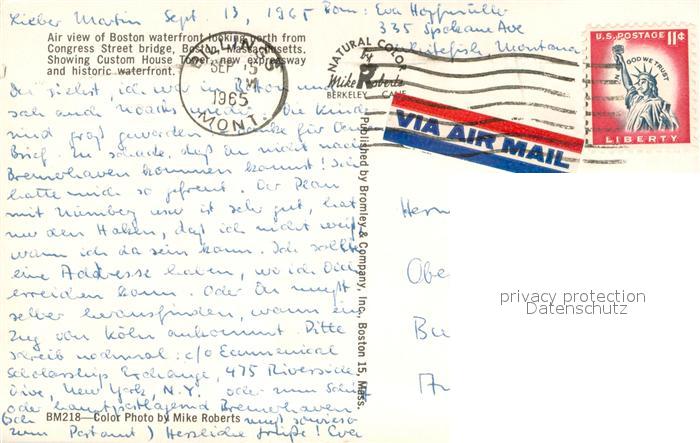 Lieber Martin Sept. 13, 1965 From: Eva Hoffmüller
335 Spokane Ave
Whitefish Montana
Air view of Boston waterfront looking north from
Congress Street bridge, Boston, Massachusetts.
Showing Custom House Tower, new expressway
and historic waterfront.
SEP 15
PM
1965
MONT.
NATURAL COLOR
by
Mike Roberts
BERKELEY CALIF
U.S. POSTAGE 11¢
IN GOD WE TRUST
LIBERTY
VIA AIR MAIL
Du siehst, ich war in Boston und
sah auch
sind groß geworden. Danke für Den
Brief. Zu schade, daß Du nicht nach
Bremerhaven kommen kannst! Ich
hatte mich so gefreut. Der Plan
mit Nürnberg usw ist sehr gut, hat
nur den Haken, daß ich nicht weiß,
wann ich da sein kann. Ich sollte
eine Addresse haben, wo ich Dich
erreichen kann. Oder Du mußt
selber herausfinden, wann ein
Zug von Köln ankommt. Bitte
schreib nochmal: c/o Ecumenical
Scholarship Exchange, 475 Riverside
Drive, New York, N.Y. oder zum Schiff
oder hauptpostlagernd Bremerhaven
(Ich muß sowieso
zum Postamt) Herzliche Grüße! Eva
BM218—Color Photo by Mike Roberts
Published by Bromley & Company, Inc., Boston 15, Mass.
Herrn
Obe
Ba
privacy protection
Datenschutz